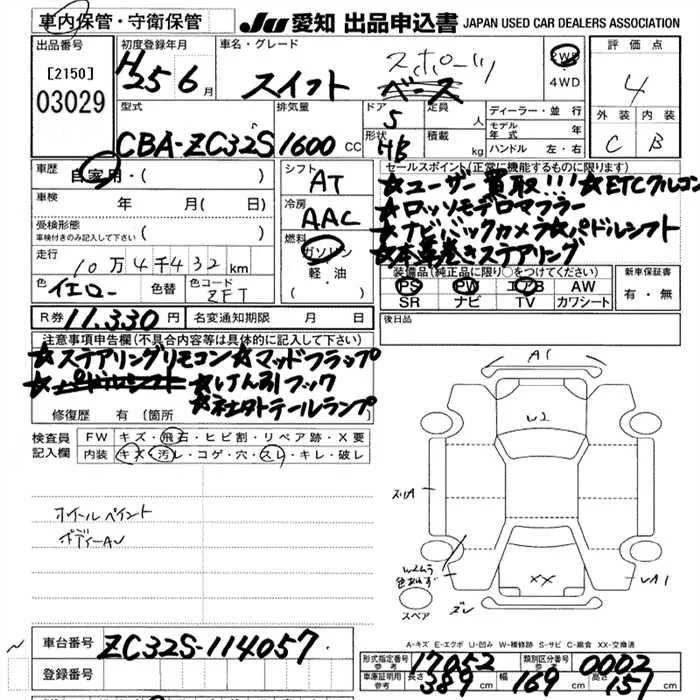 車内保管・守衛保管
JU 愛知 出品申込書 JAPAN USED CAR DEALERS ASSOCIATION
出品番号
[2150]
03029
初度登録年月
H25 6月
車名・グレード
スイフト スポーツ
ベース
2WD
・
4WD
評価点
4
外装 内装
C B
型式
CBA-ZC32S
排気量
1600 CC
ドア
5
形状
HB
定員
人
積載
kg
ディーラー・並行
モデル年式 年
ハンドル 左・右
車歴
自家用・( )
車検 年 月( 日)
受検形態
車検付きのみ記入して下さい ( )
走行
10万4千432km
色
イエロー
色替
色コード
ZFT
シフト
AT
冷房
AAC
燃料
ガソリン
軽・油
・
( )
セールスポイント(正常に機能するものに限ります)
★ユーザー買取!!!★ETCクルコン
★ロッソモデロマフラー
★ナビバックカメラ★パドルシフト
★本革巻きステアリング
装備品(純正品に限り○をつけてください)
PS PW エアB AW
SR ナビ TV カワシート
新車保証書
有・無
R券 11.330円 名変通知期限 月 日
後日品
注意事項申告欄(不具合内容等は具体的に記入して下さい)
★ステアリングリモコン★マッドフラップ
★パドルシフト ★けん引フック
★社外テールランプ
修復歴 有(箇所
検査員
記入欄
FW キズ・飛石・ヒビ割・リペア跡・X要
内装 キズ・汚レ・コゲ・穴・スレ・キレ・破レ
ホイールペイント
ボディーAU
A1
U2
ズリA
XX
UA1
色あせ
ズレ
スペア
A-キズ E-エクボ U-凹み W-補修跡 S-サビ C-腐食 XX-交換済
車台番号 ZC32S-114057
登録番号
形式指定番号
参考
17052
類別区分番号
参考
0002
車庫証明用
参考
長さ 389cm 幅 169cm 高さ 151cm